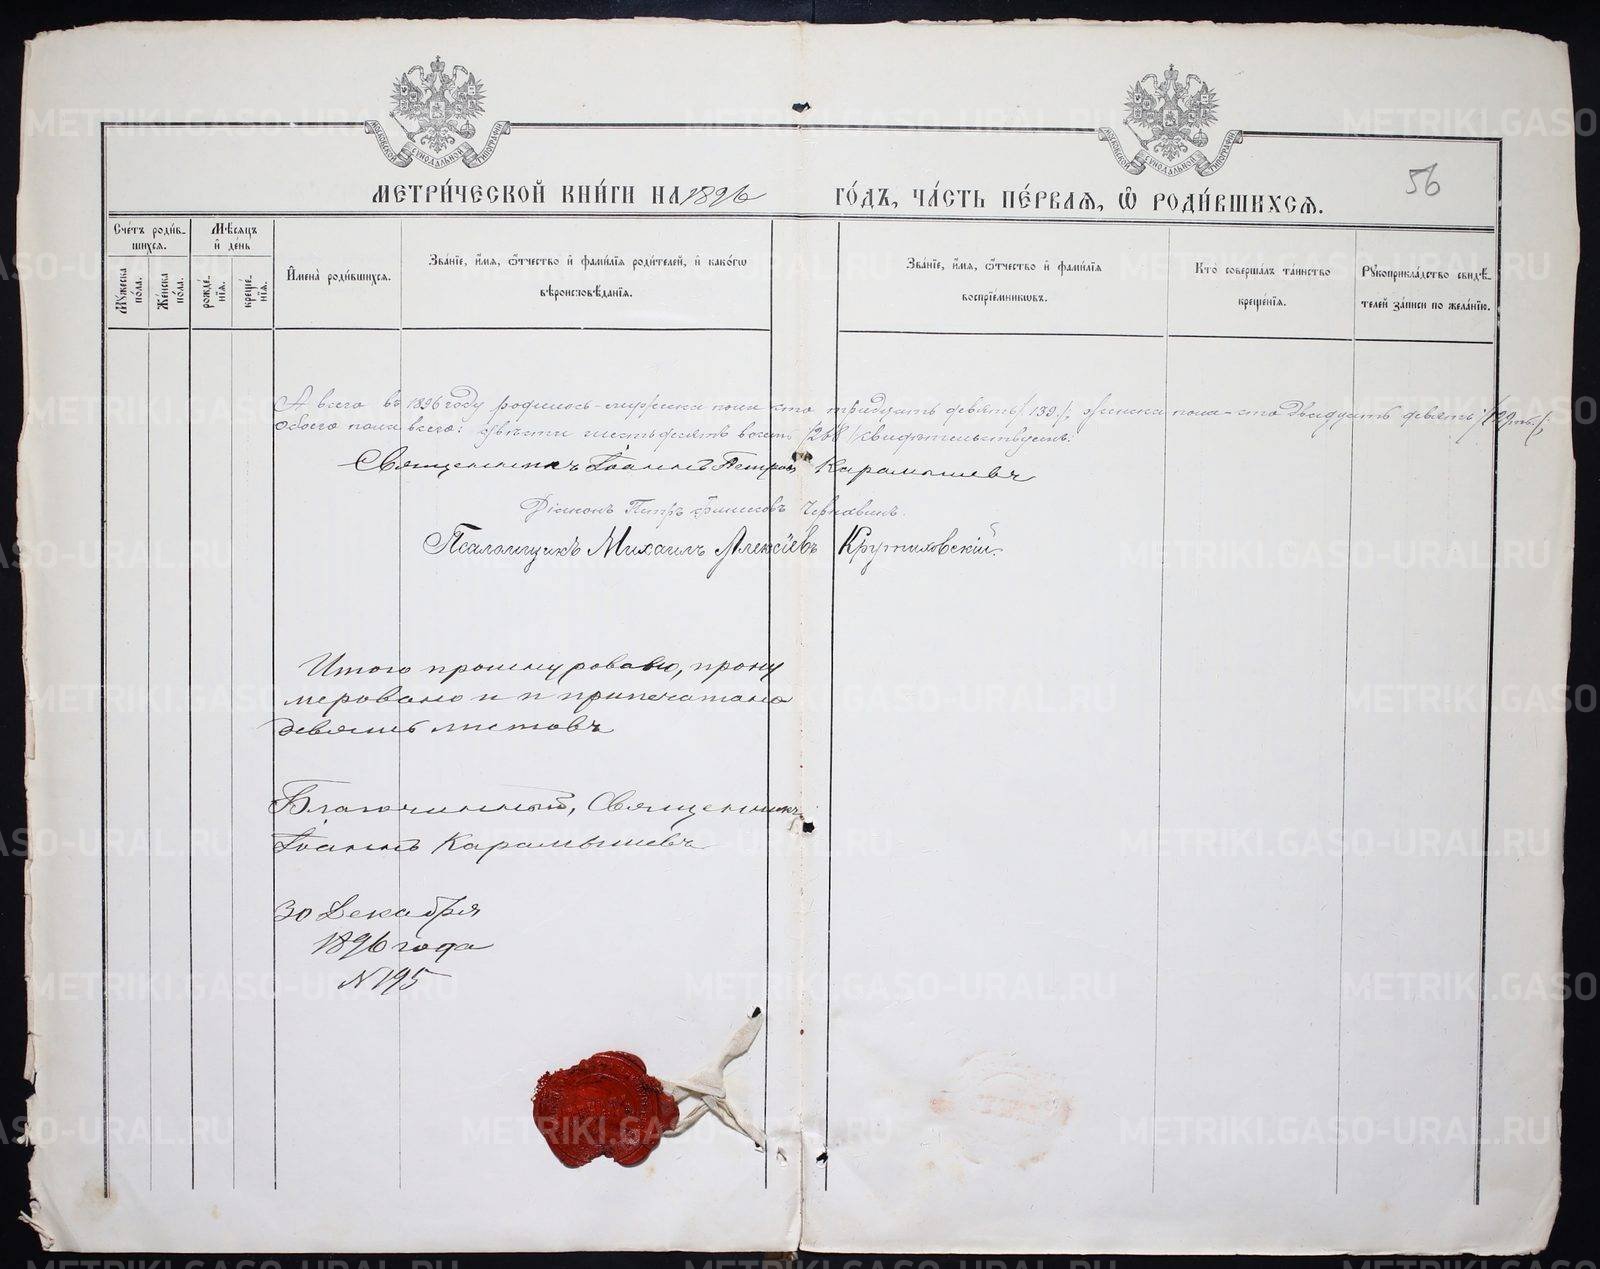 МОСКОВСКОЙ СѴНОДАЛЬНОЙ ТИПОГРАФІИ
МОСКОВСКОЙ СѴНОДАЛЬНОЙ ТИПОГРАФІИ
56
МЕТРИ́ЧЕСКОЙ КНИ́ГИ НА 1896 ГО́ДЪ, ЧА́СТЬ ПЕ́РВАѦ, Ѡ҆ РОДИ́ВШИХСѦ.
Сче́тъ роди́в-
шихсѧ.
Мꙋ́жеска по́ла.
Же́нска по́ла.
Мѣ́сѧцъ
и҆ де́нь
рожде́-
нїѧ.
креще́-
нїѧ.
И҆мена̀ роди́вшихсѧ.
Зва́нїе, и҆́мѧ, ѻ҆́тчество и҆ фами́лїѧ роди́телей, и҆ како́гѡ
вѣроисповѣ́данїѧ.
Зва́нїе, и҆́мѧ, ѻ҆́тчество и҆ фами́лїѧ
воспрїе́мникѡвъ.
Кто̀ соверша́лъ та́инство
креще́нїѧ.
Рꙋкоприкла́дство свидѣ́-
телей за́писи по жела́нїю.
А всего въ 1896 году родилось – мужска пола сто тридцать девять /139./, женска пола – сто двадцать девять /129./;
обоего пола всего: двѣсти шестьдесятъ восемь /268/ свидѣтельствуемъ:
Священникъ Іоаннъ Петровъ Карамышевъ
Діаконъ Петръ Чернавинъ.
Псаломщикъ Михаилъ Алексіевъ Крутиховскій.
Итого прошнуровано, прону
меровано и п припечатано
девять листовъ
Благочинный, Священникъ
Іоаннъ Карамышевъ
30 Декабря
1896 года
N 195